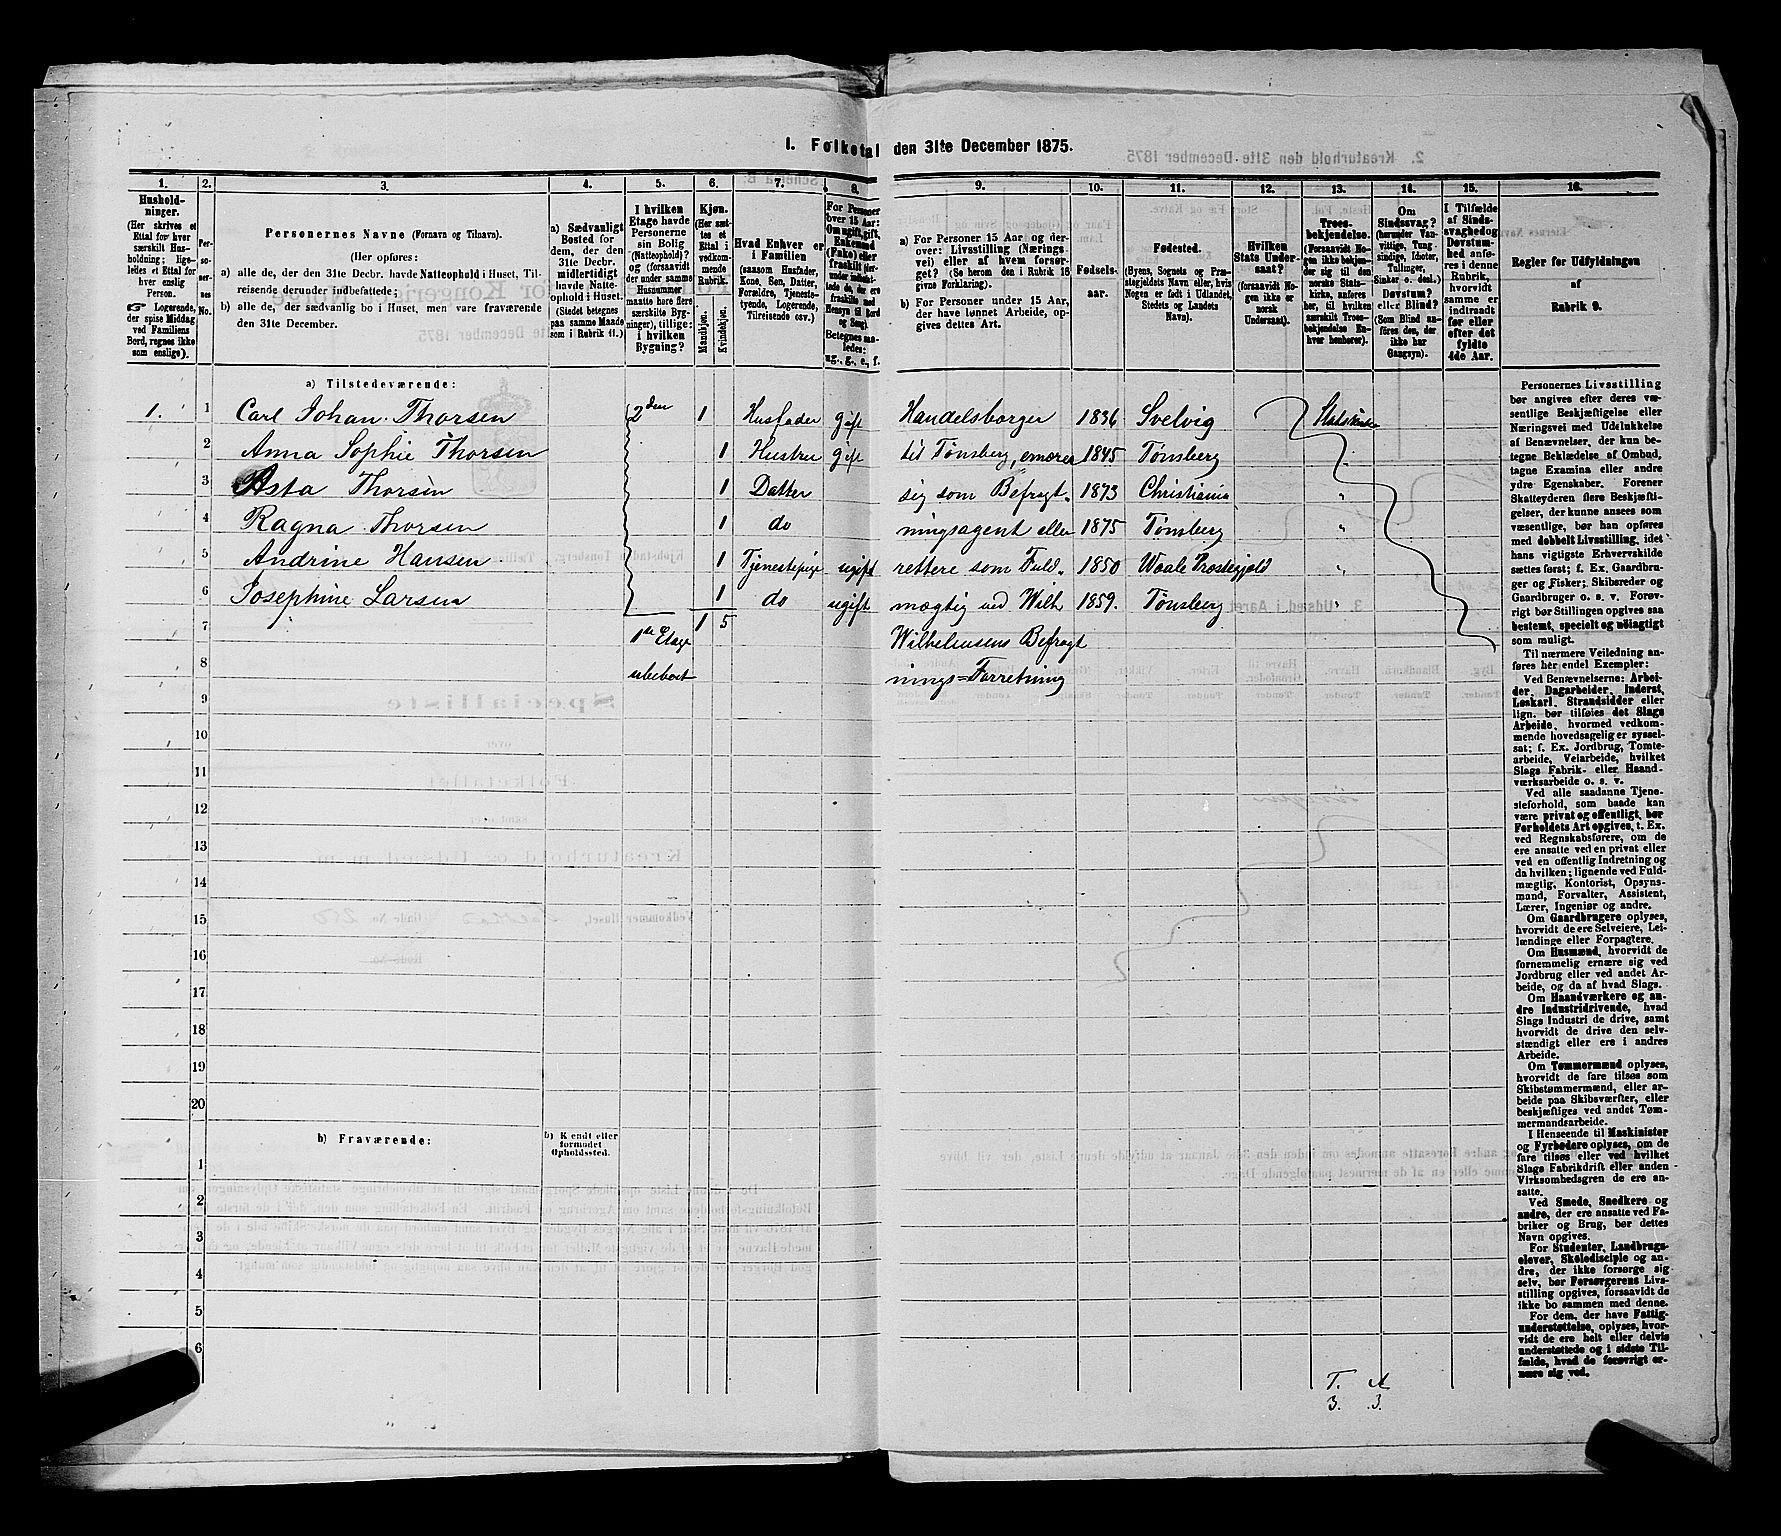 1. Folketal den 31te December 1875.
1. 2. 3. 4. 5. 6. 7. 8. 9. 10. 11. 12. 13. 14. 15. 16.
Husholdninger.
(Her skrives et
Ettal for hver
særskilt Husholdning; ligeledes et Ettal for
hver enslig
Person.
Logerende,
der spise Middag
ved Familiens
Bord, regnes ikke
som enslige).
Personernes No.
Personernes Navne (Fornavn og Tilnavn).
(Her opføres:
a) alle de, der den 31te Decbr. havde Natteophold i Huset, Tilreisende derunder indbefattede;
b) alle de, der sædvanlig bo i Huset, men vare fraværende
den 31te December.
a) Sædvanligt
Bosted for
dem, der den
31te Decbr.
midlertidigt
havde Natteophold i Huset.
(Stedet betegnes
paa samme Maade
som i Rubrik 11.)
I hvilken
Etage havde
Personerne
sin Bolig
(Natteophold)?
og (forsaavidt
der under samme
Husnummer
maatte høre flere
særskilte Bygninger), tillige:
i hvilken
Bygning?
Kjøn.
(Her sættes et
Ettal i
vedkommende
Rubrik.
Mandkjøn.
Kvindekjøn.
Hvad Enhver er
i Familien
(saasom Husfader,
Kone, Søn, Datter,
Forældre, Tjenestetyende, Logerende,
Tilreisende osv.)
For Personer
over 15 Aar:
Om ugift, gift,
Enkemand
(Enke) eller
fraskilt
Betegnes saaledes:
ug., g., e., f.
a) For Personer 15 Aar og derover: Livsstilling (Næringsvei) eller af hvem forsørget? (Se herom den i Rubrik 16
givne Forklaring).
b) For Personer under 15 Aar,
der have lønnet Arbeide, opgives dettes Art.
Fødselsaar.
Fødested.
(Byens, Sognets og Præstegjeldets Navn eller, hvis
Nogen er født i Udlandet,
Stedets og Landets
Navn).
Hvilken
Stats Undersaat?
(forsaavidt Nogen ikke er
norsk
Undersaat).
Troesbekjendelse.
(Forsaavidt Nogen ikke bekjender sig til den
norske Statskirke, anføres
her, til hvilken
særskilt Troesbekjendelse Enhver henhører).
Om
Sindssvag?
(herunder Vanvittige, Tungsindige, Idioter,
Tullinger,
Sinker o. desl.)
Døvstum?
eller Blind?
(Som Blind anføres den, der
ikke har
Gangsyn).
I Tilfælde
af Sindssvaghed og
Døvstumhed anføres i denne
Rubrik,
hvorvidt
samme er
indtraadt
før eller
efter det
fyldte
4de Aar.
Regler for Udfyldningen
af
Rubrik 9.
a) Tilstedeværende:
1. 1 Carl Johan Thorsen 2den 1 Husfader gift Handelsborger 1836 Svelvig Statskirken
2 Anna Sophie Thorsen 1 Hustru gift til Tønsberg, ernærer 1845 Tønsberg "
3 Asta Thorsen 1 Datter sig som Befragt- 1873 Christiania "
4 Ragna Thorsen 1 do ningsagent eller 1875 Tønsberg "
5 Andrine Hansen 1 Tjenestepige ugift rettere som Fuld- 1850 Waale Præstegjeld "
6 Josephine Larsen 1 do ugift mægtig ved Wilh 1859. Tønsberg "
7 1ste Etage 1 5 Wilhelmsens Befragt
8 ubeboet nings=Forretning
9
10
11
12
13
14
15
16
17
18
19
20
b) Fraværende: b) Kjendt eller
formodet
Opholdssted.
1
2
3
4
5
6
Personernes Livsstilling
bør angives efter deres væsentlige Beskjæftigelse eller
Næringsvei med Udelukkelse
af Benævnelser, der kun betegne Beklædelse af Ombud,
tagne Examina eller andre
ydre Egenskaber. Forener
Skatteyderen flere Beskjæftigelser, der kunne ansees som
væsentlige, bør han opføres
med dobbelt Livsstilling, idet
hans vigtigste Erhvervskilde
sættes først; f. Ex. Gaardbruger og Fisker; Skibsreder og
Gaardbruger o. s. v. Forøvrigt bør Stillingen opgives saa
bestemt, specielt og nøiagtigt
som muligt.
Til nærmere Veiledning anføres her endel Exempler:
Ved Benævnelserne: Arbeider, Dagarbeider, Inderst,
Løskarl, Strandsidder eller
lign. bør tilføies det Slags
Arbeide, hvormed vedkommende hovedsagelig er sysselsat; f. Ex. Jordbrug, Tomtearbeide, Veiarbeide, hvilket
Slags Fabrik- eller Haandværksarbeide o. s. v.
Ved alle saadanne Tjenesteforhold, som baade kan
være privat og offentligt, bør
Forholdets Art opgives, t. Ex.
ved Regnskabsførere, om de
ere ansatte ved en privat eller
ved en offentlig Indretning og
da hvilken; lignende ved Fuldmægtig, Kontorist, Opsynsmand, Forvalter, Assistent,
Lærer, Ingeniør og andre.
Om Gaardbrugere oplyses,
hvorvidt de ere Selveiere, Leilændinge eller Forpagtere.
Om Husmænd, hvorvidt de
fornemmelig ernære sig ved
Jordbrug eller ved andet Arbeide, og da af hvad Slags.
Om Haandværkere og andre Industridrivende, hvad
Slags Industri de drive, samt
hvorvidt de drive den selvstændigt eller ere i andres
Arbeide.
Om Tømmermænd oplyses,
hvorvidt de fare tilsøs som
Skibstømmermænd, eller arbeide paa Skibsværfter, eller
beskjæftiges ved andet Tømmermandsarbeide.
I Henseende til Maskinister
og Fyrbødere oplyses, om de
fare tilsøs eller ved hvilket
Slags Fabrikdrift eller anden
Virksomhedsgren de ere ansatte.
Ved Smede, Snedkere og
andre, der ere ansatte ved Fabriker og Brug, bør dettes
Navn opgives.
For Studenter, Landbrugselever, Skoledisciple og andre, der ikke forsørge sig
selv, bør Forsørgerens Livsstilling opgives, forsaavidt de
ikke bo sammen med denne.
For dem, der have Fattigunderstøttelse, oplyses, hvorvidt de ere helt eller delvis
understøttede og i sidste Tilfælde, hvad de forøvrigt ernære sig ved.
T. A
3. 3.